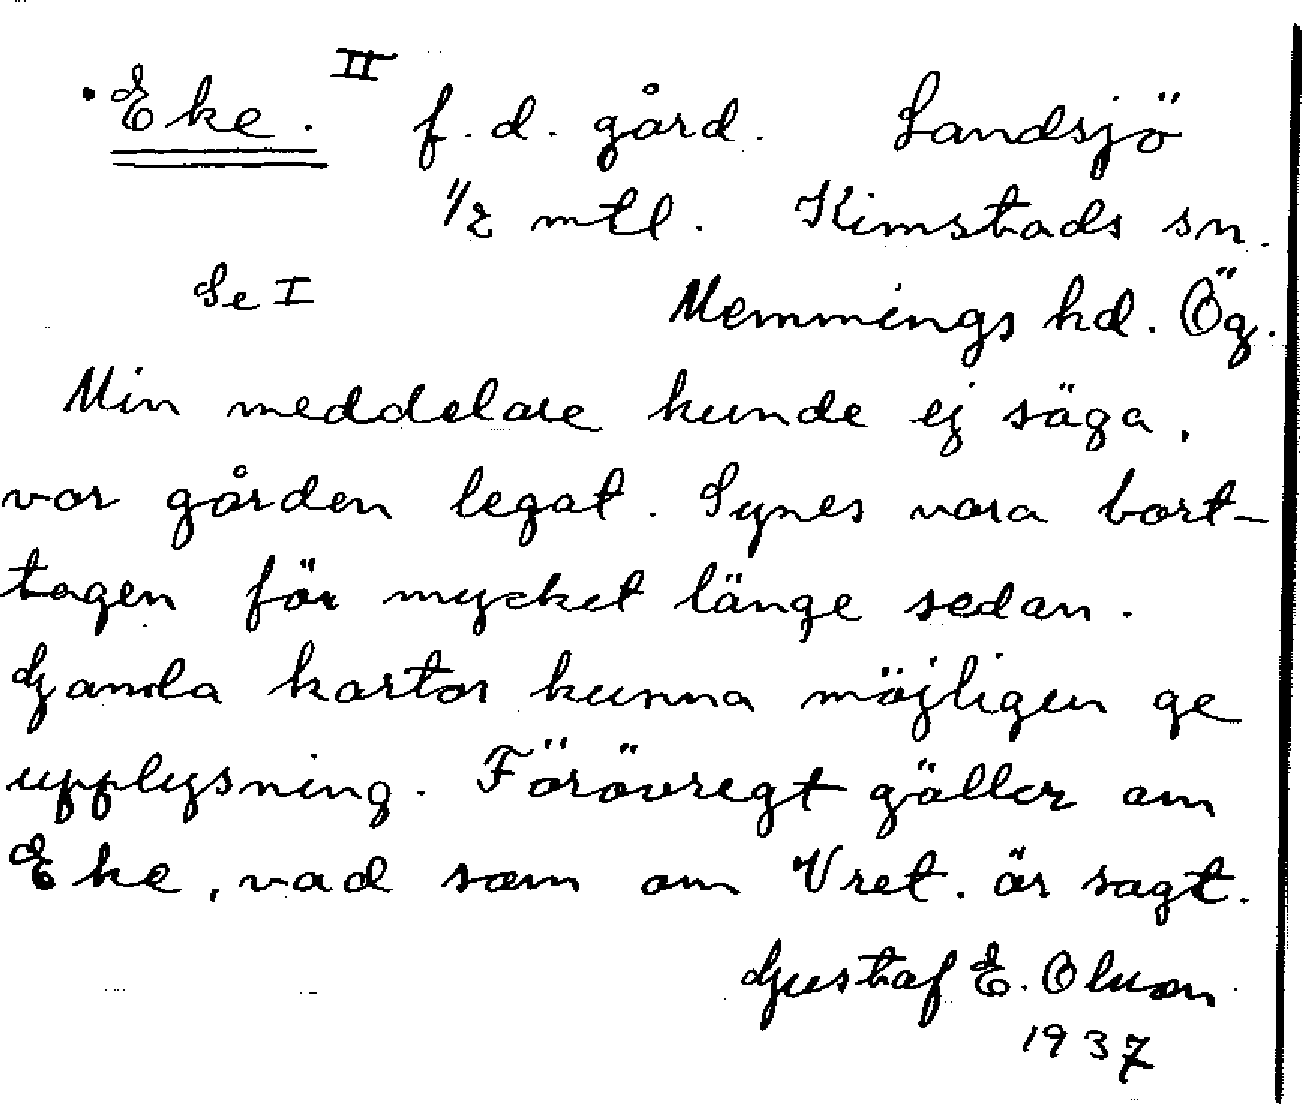 Eke. II f. d. gård. Landsjö
1/2 mtl. Kimstads sn.
Se I Memmings hd. Ög.
Min meddelare kunde ej säga,
var gården legat. Synes vara bort-
tagen för mycket länge sedan.
Gamla kartor kunna möjligen ge
upplysning. Förövregt gäller om
Eke, vad som om Vret. är sagt.
Gustaf E. Olsson
1937